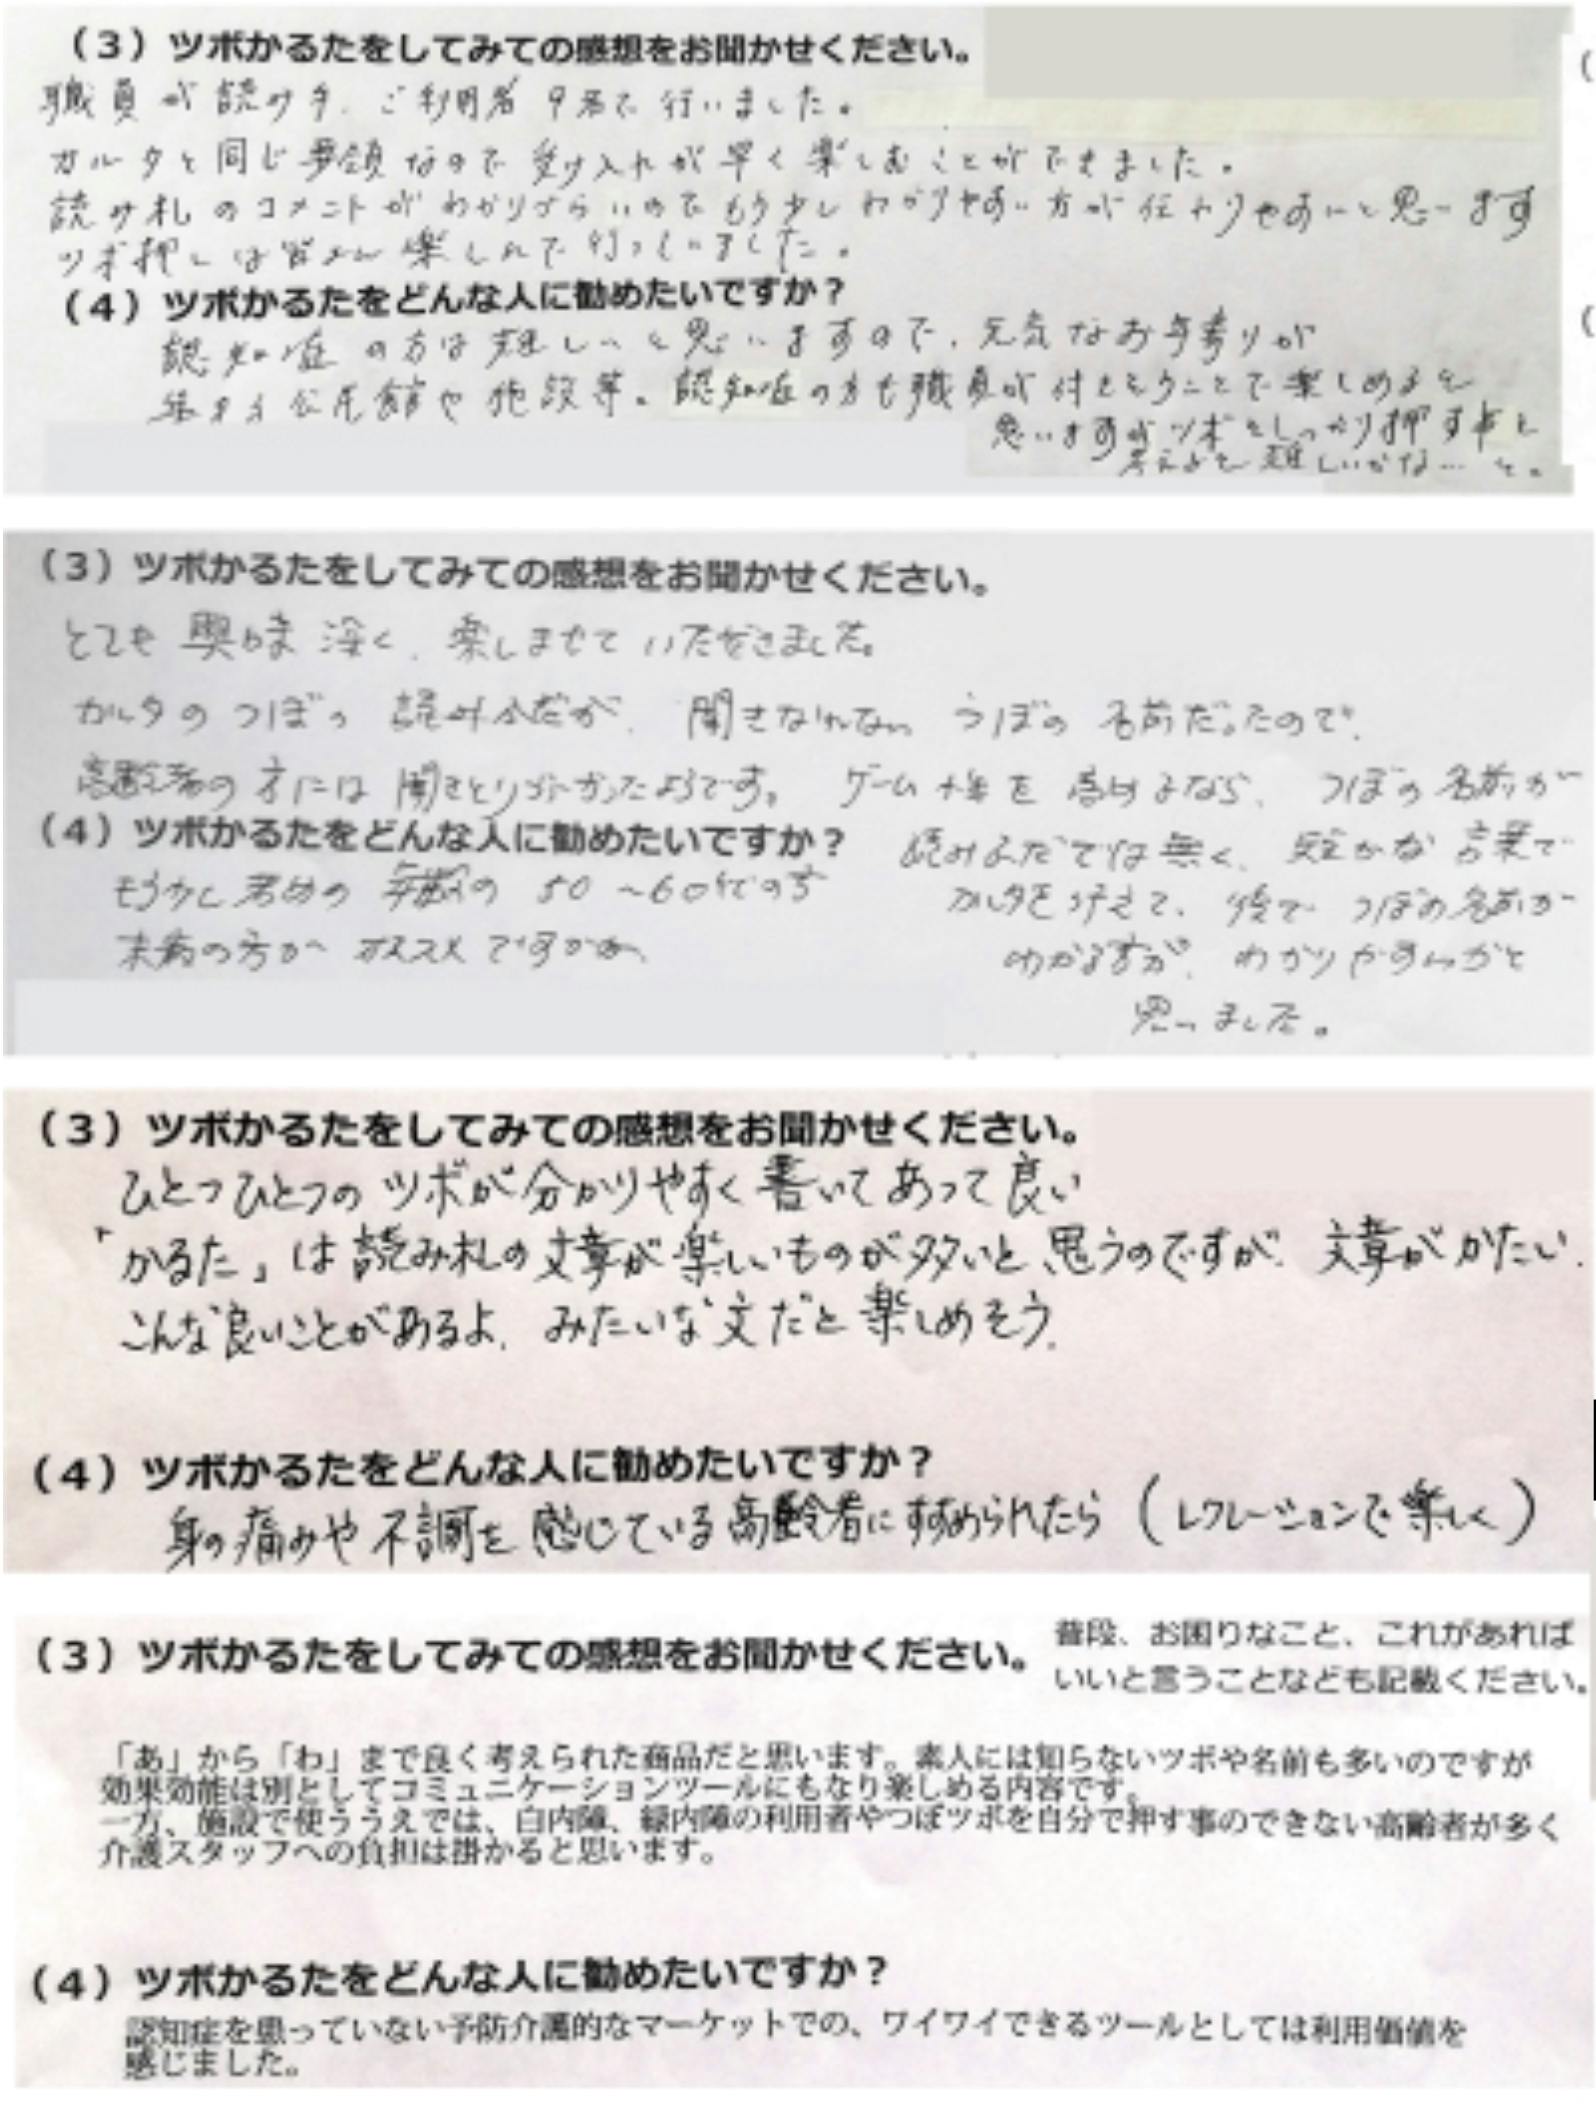 （3）ツボかるたをしてみての感想をお聞かせください。
職員が読み手、ご利用者9名で行いました。
カルタと同じ要領なので受け入れが早く楽しむことができました。
読み札のコメントがわかりづらいのでもう少しわかりやすい方が伝わりやすいと思います
ツボ押しは皆さん楽しんで行っていました。
（4）ツボかるたをどんな人に勧めたいですか？
認知症の方は難しいと思いますので、元気なお年寄りが
集まる公民館や施設等。認知症の方も職員が付きそうことで楽しめると
思いますがツボをしっかり押す事を
考えると難しいかな…と。
（3）ツボかるたをしてみての感想をお聞かせください。
とても興味深く、楽しませていただきました。
カルタのつぼの読み上げだが、聞きなれない つぼの名前だったので、
高齢者の方には聞きとりづらかったようです。 ゲーム性を高めるなら、つぼの名前が
読み上げでは無く、短かな言葉で
カルタを作って、後でつぼの名前が
わかる方が、わかりやすいかと
思いました。
（4）ツボかるたをどんな人に勧めたいですか？
もう少し若めの年齢の50～60代の方
未病の方が オススメですかね
（3）ツボかるたをしてみての感想をお聞かせください。
ひとつひとつのツボが分かりやすく書いてあって良い
「かるた」は読み札の文章が楽しいものが多いと思うのですが、文章がかたい、
こんな良いことがあるよ、みたいな文だと楽しめそう、
（4）ツボかるたをどんな人に勧めたいですか？
身の痛みや不調を感じている高齢者にすすめられたら（レクレーションで楽しく）
（3）ツボかるたをしてみての感想をお聞かせください。
普段、お困りなこと、これがあれば
いいと言うことなども記載ください。
「あ」から「わ」まで良く考えられた商品だと思います。素人には知らないツボや名前も多いのですが
効果効能は別としてコミュニケーションツールにもなり楽しめる内容です。
一方、施設で使ううえでは、白内障、緑内障の利用者やつぼツボを自分で押す事のできない高齢者が多く
介護スタッフへの負担は掛かると思います。
（4）ツボかるたをどんな人に勧めたいですか？
認知症を患っていない予防介護的なマーケットでの、ワイワイできるツールとしては利用価値を
感じました。